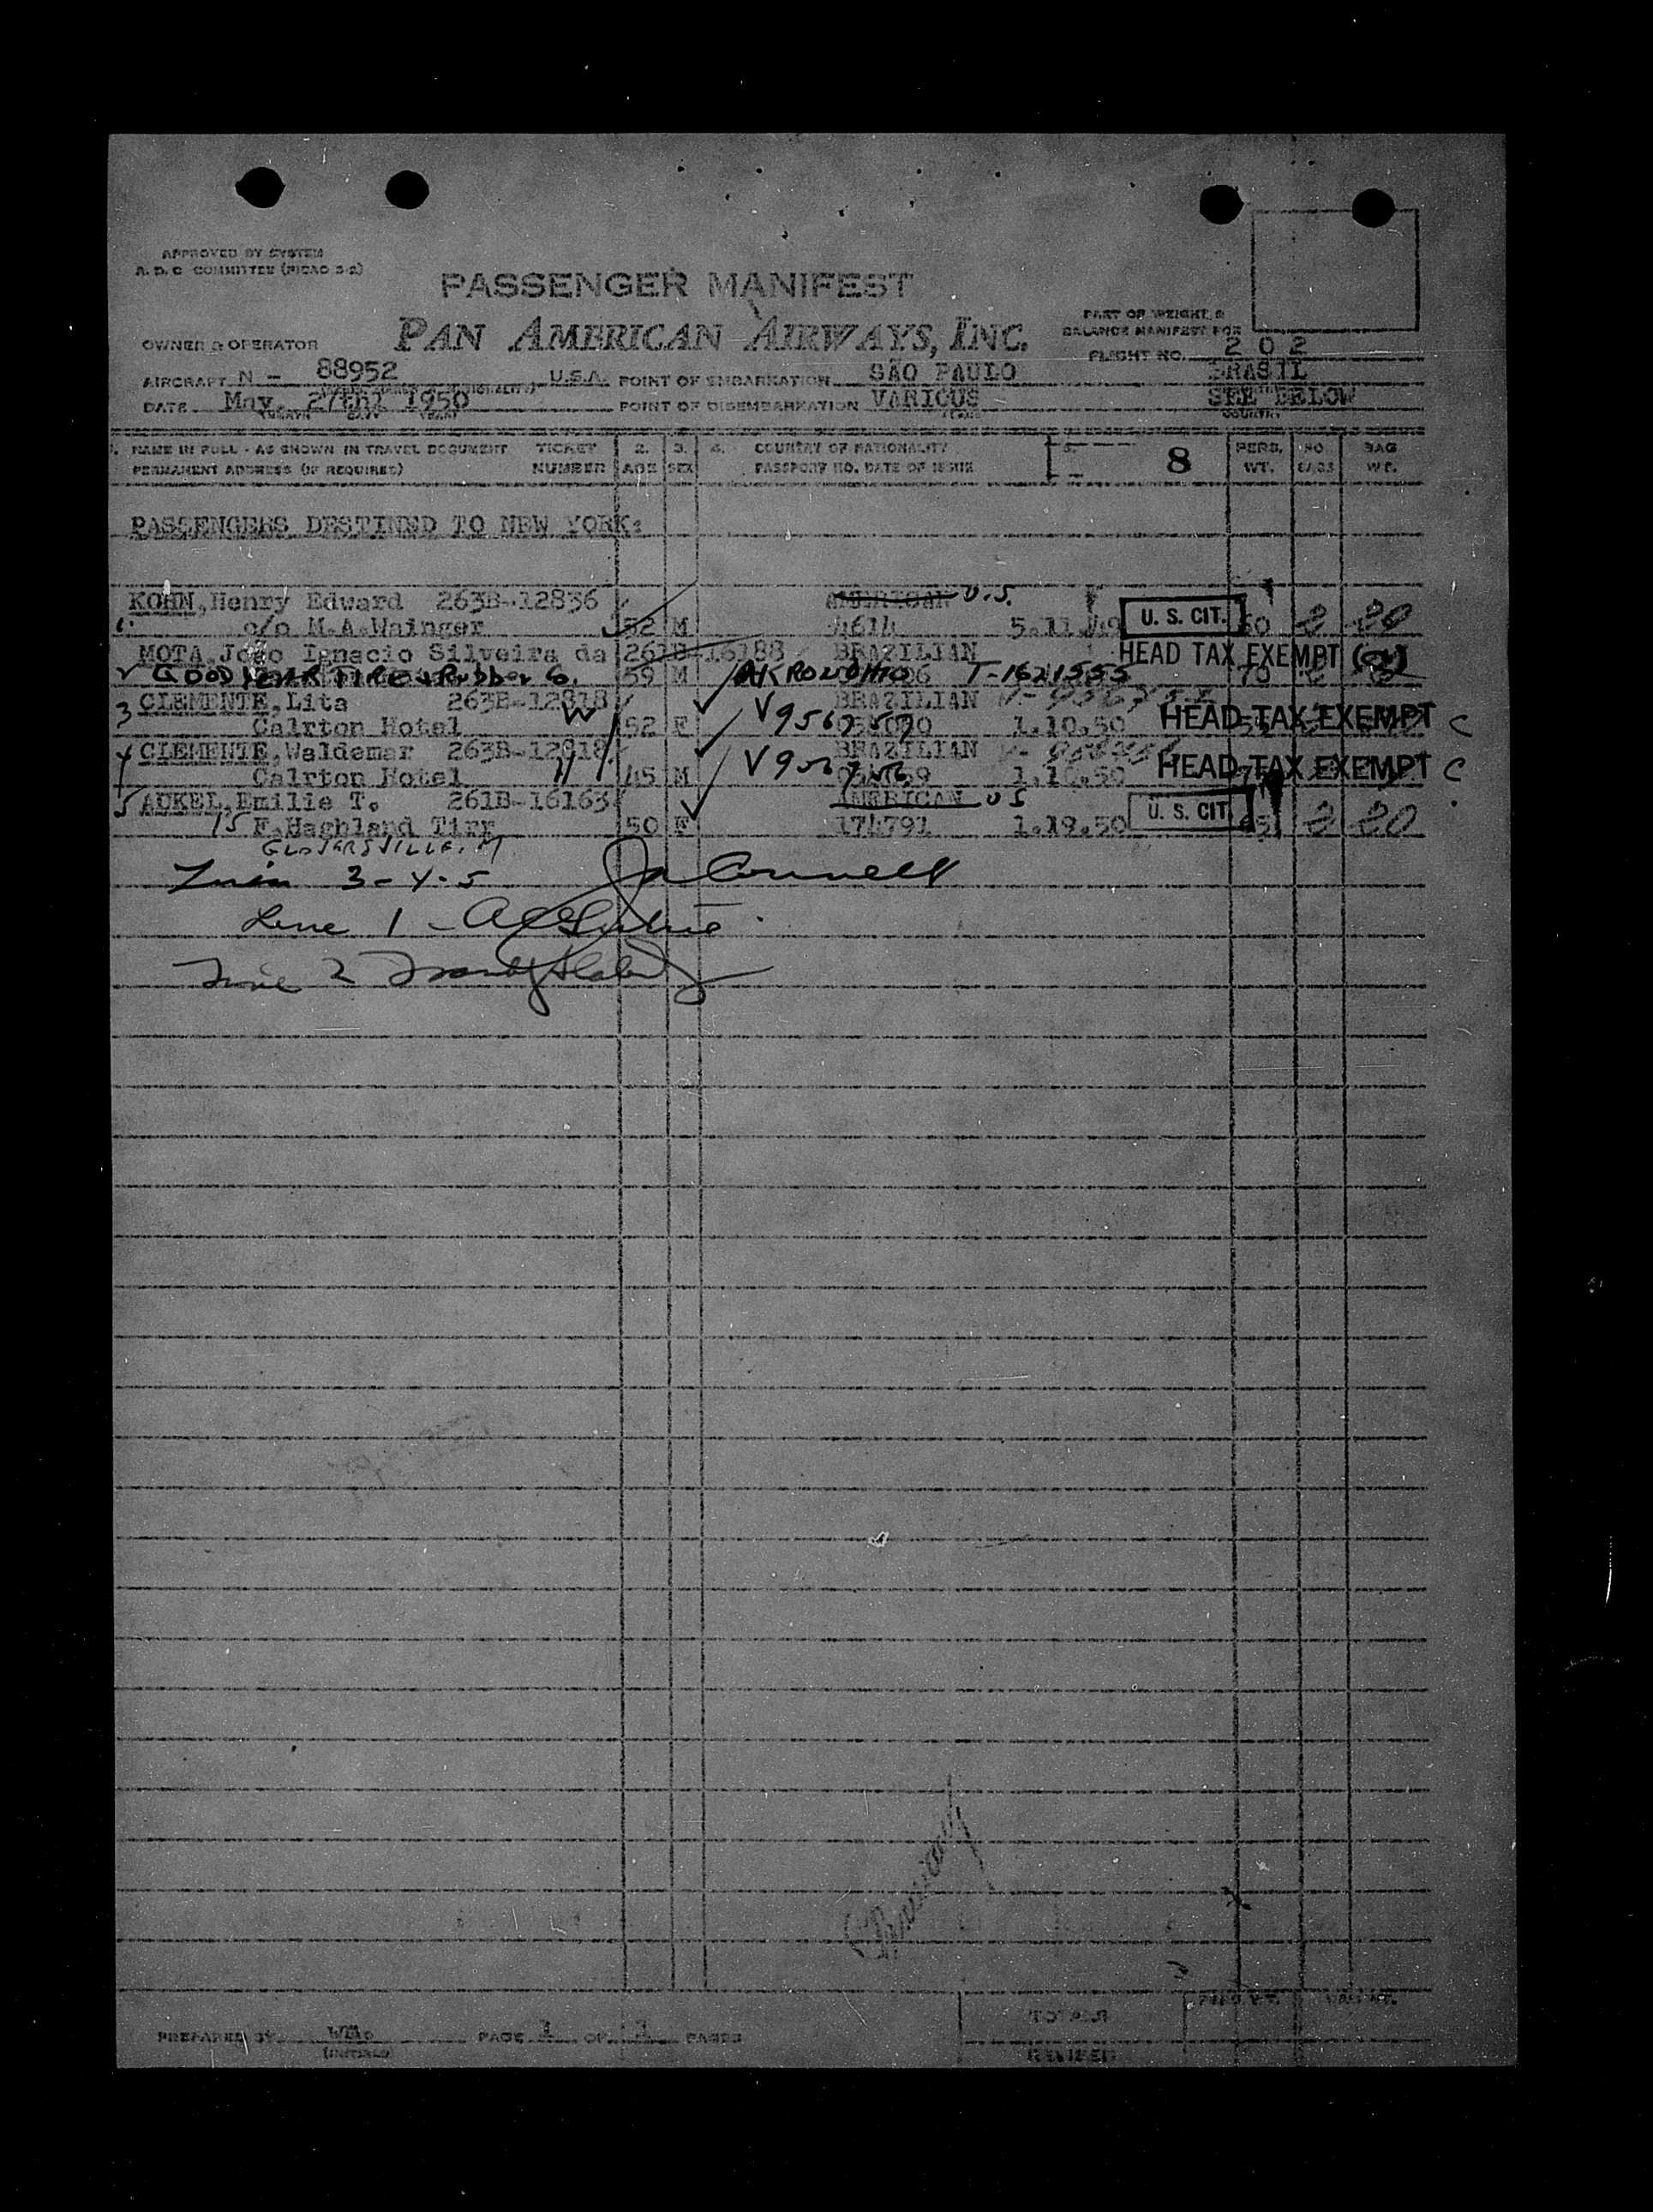 APPROVED BY SYSTEM
A. D. C COMMITTEE (PICAO 3-2)
PASSENGER MANIFEST
PAN AMERICAN AIRWAYS, INC.
PART OF WEIGHT &
BALANCE MANIFEST FOR
OWNER & OPERATOR
FLIGHT NO. 202
AIRCRAFT N - 88952 U.S.A. POINT OF EMBARKATION SÃO PAULO BRASIL
DATE May. 27th, 1950 POINT OF DISEMBARKATION VARIOUS SEE BELOW
MONTH DAY YEAR COUNTRY
1. NAME IN FULL - AS SHOWN IN TRAVEL DOCUMENT TICKET 2. 3. 4. COUNTRY OF NATIONALITY 5. 8 PERS. NO. BAG
PERMANENT ADDRESS (IF REQUIRED) NUMBER AGE SEX PASSPORT NO. DATE OF ISSUE WT. BAGS WT.
PASSENGERS DESTINED TO NEW YORK:
KOHN, Henry Edward 263B-12836 AMERICAN U.S.
1. c/o M.A.Wainger 52 M 4614 5.11.49 U. S. CIT. 2 20
MOTA, João Ignacio Silveira da 261B-16188 BRAZILIAN HEAD TAX EXEMPT
GOODYEAR TIRE & Rubber Co. 59 M AKRON OHIO T-1621555 70
3 CLEMENTE, Lita 263B-12818 BRAZILIAN
Calrton Hotel W 52 F V956 1.10.50 HEAD TAX EXEMPT C
4 CLEMENTE, Waldemar 263B-12818 BRAZILIAN
Calrton Hotel 45 M V956 1.10.50 HEAD TAX EXEMPT C
5 ADKEL, Emilie T. 261B-16163 AMERICAN US
15 F. Haghland Tirr 50 F 174791 1.19.50 U. S. CIT. 65 2 20
GLOVERSVILLE.
3-4-5 Connell
Line 1 -
Line 2
PREPARED BY PAGE 1 OF 1 PAGES
(INITIALS)
TOTALS